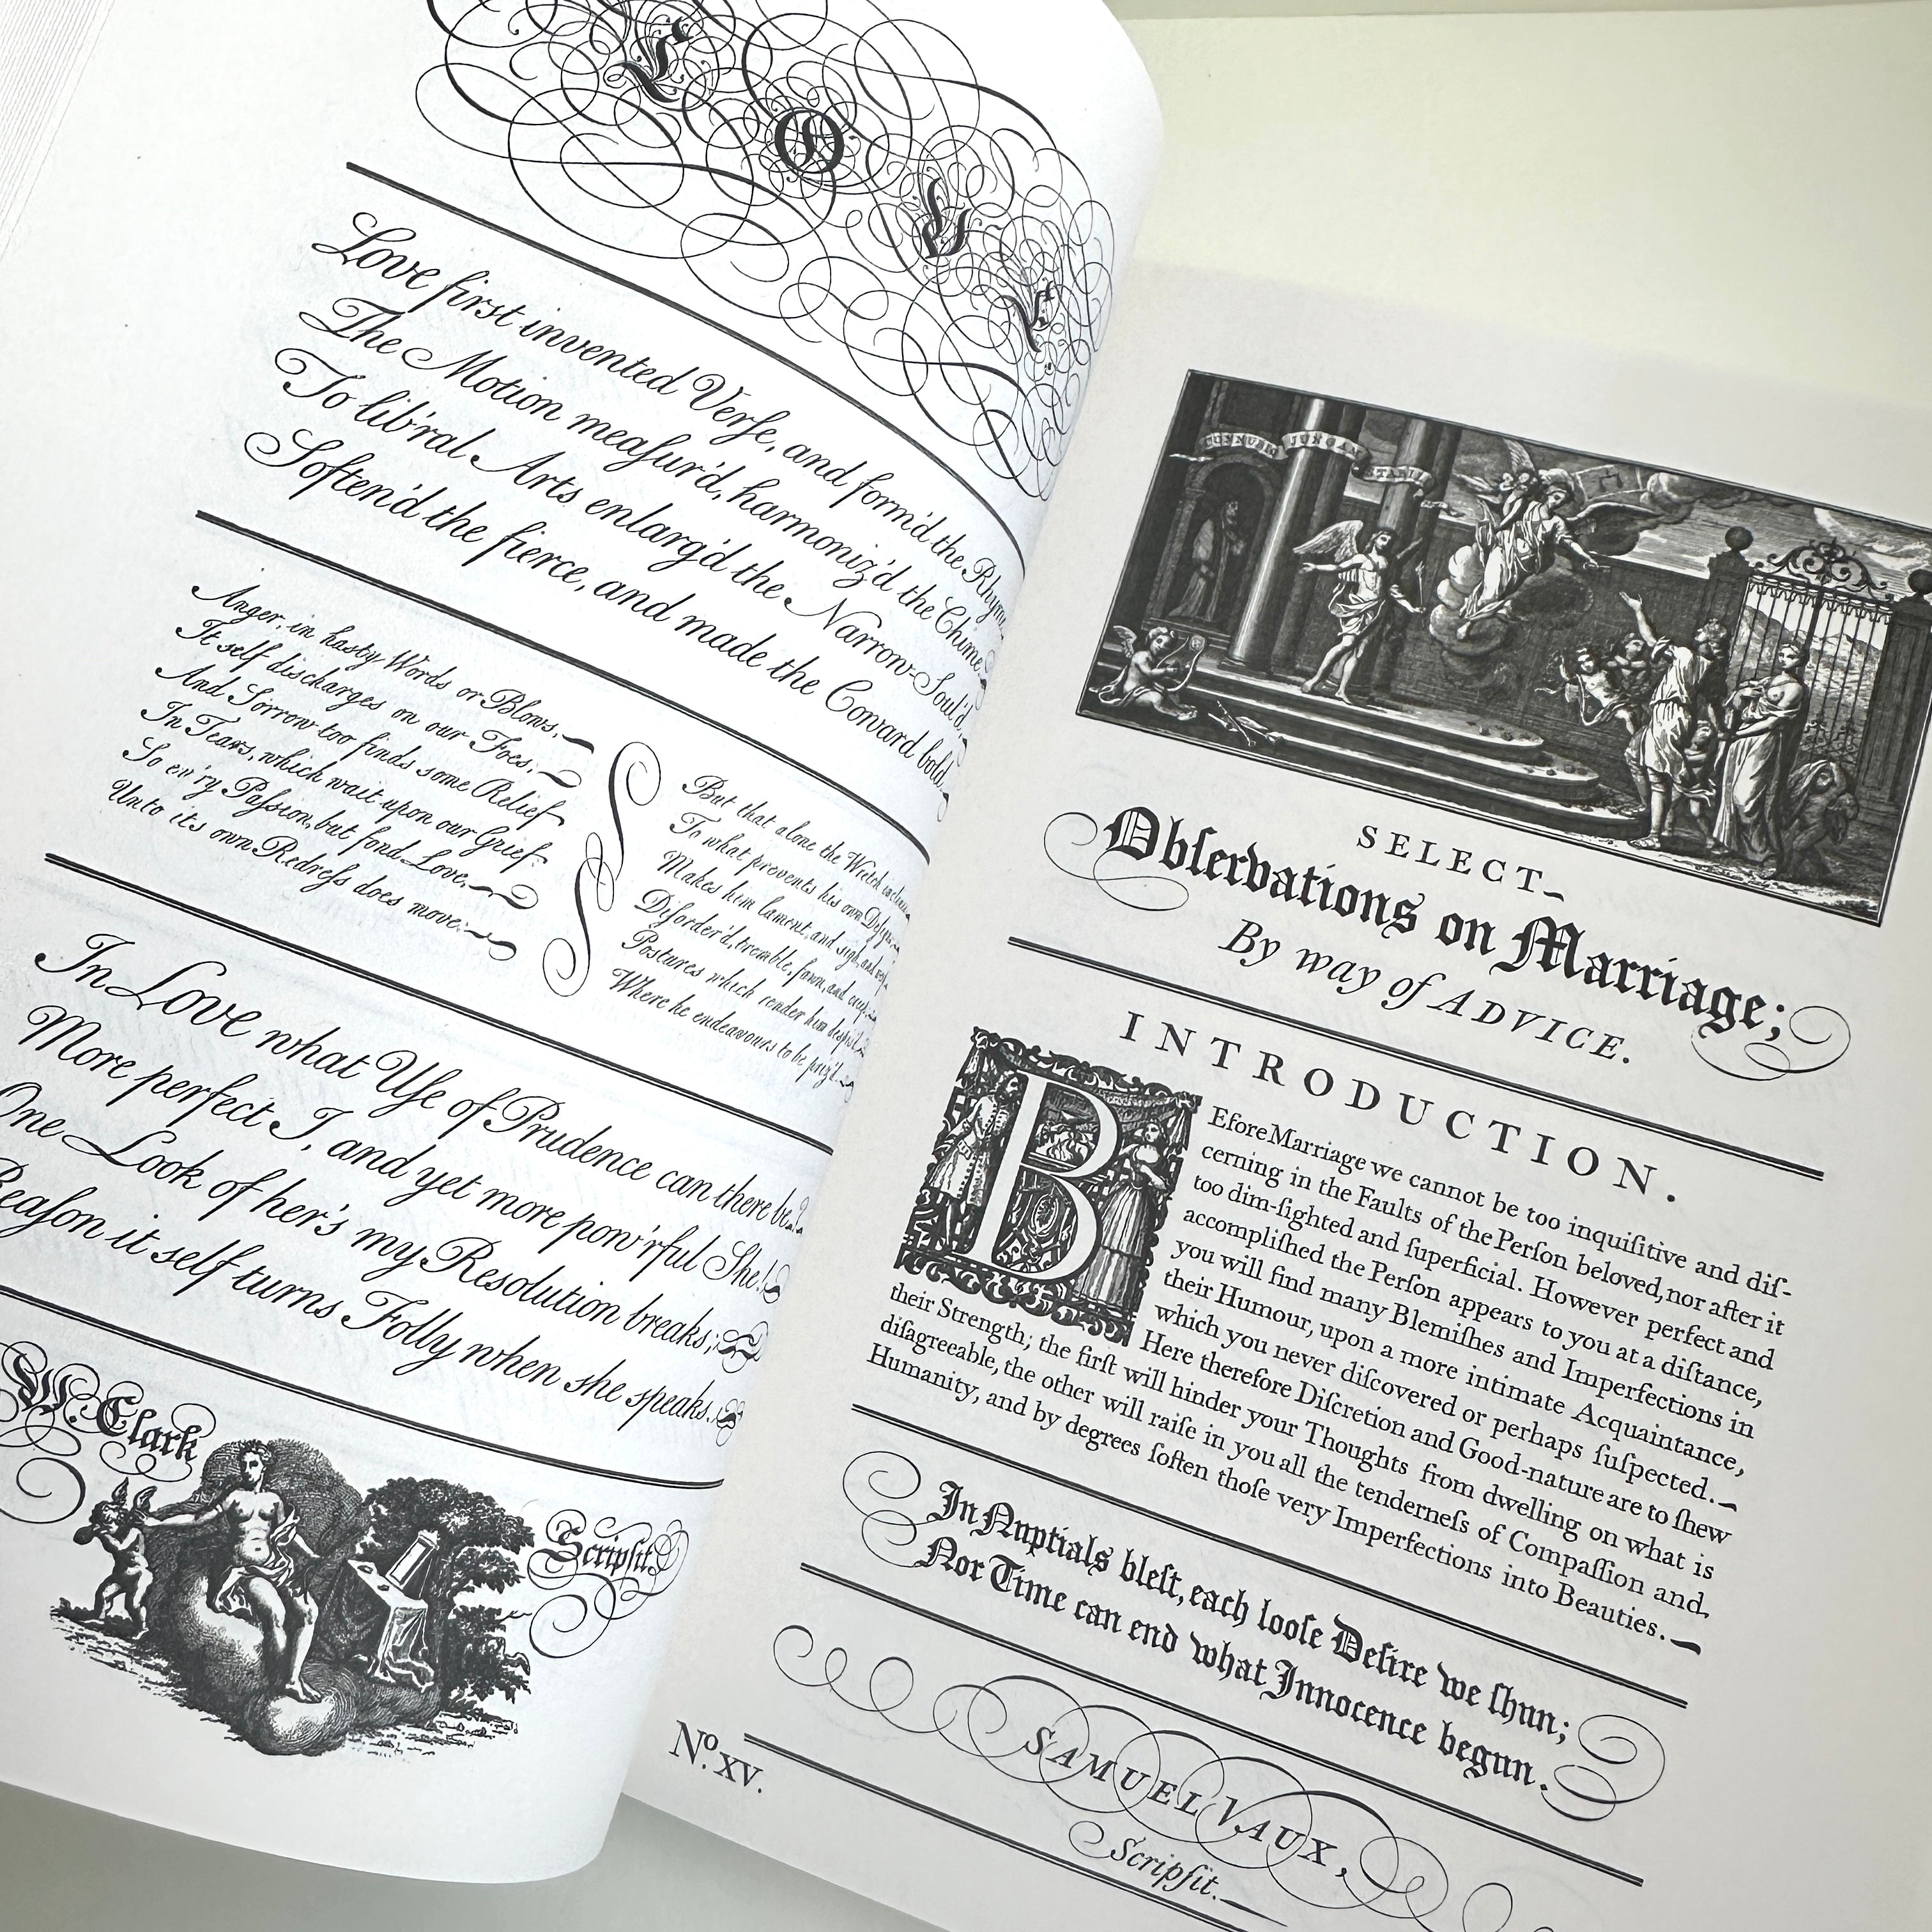 LOVE
Love first invented Verſe, and form'd the Rhyme,
The Motion meaſur'd, harmoniz'd the Chime
To lib'ral Arts enlarg'd the Narrow-Soul'd,
Soften'd the fierce, and made the Coward bold.
Anger, in hasty Words or Blows,
It self discharges on our Foes;
And Sorrow too finds some Relief
In Tears, which wait upon our Grief:
So ev'ry Paſsion, but fond Love,
Unto its own Redreſs does move:
But that alone the Wretch inclines
To what prevents his own Deſigns
Makes him lament, and sigh, and weep,
Diſorder'd, tremble, fawn, and creep
Postures which render him despis'd
Where he endeavours to be priz'd.
In Love what Uſe of Prudence can there be
More perfect I, and yet more pow'rful She!
One Look of her's my Resolution breaks;
Reaſon it self turns Folly when she speaks.
W. Clark
Scripſit
CONNUBIO JUNGAM STABILI
SELECT
Obſervations on Marriage;
By way of ADVICE.
INTRODUCTION.
BEfore Marriage we cannot be too inquiſitive and diſ-
cerning in the Faults of the Perſon beloved, nor after it
too dim-ſighted and ſuperficial. However perfect and
accompliſhed the Perſon appears to you at a diſtance,
you will find many Blemiſhes and Imperfections in
their Humour, upon a more intimate Acquaintance,
which you never diſcovered or perhaps ſuſpected.
Here therefore Diſcretion and Good-nature are to ſhew
their Strength; the firſt will hinder your Thoughts from dwelling on what is
diſagreeable, the other will raiſe in you all the tenderneſs of Compaſſion and,
Humanity, and by degrees ſoften thoſe very Imperfections into Beauties.
In Nuptials bleſt, each looſe Deſire we ſhun;
Nor Time can end what Innocence begun.
SAMUEL VAUX,
Scripſit.
No. XV.